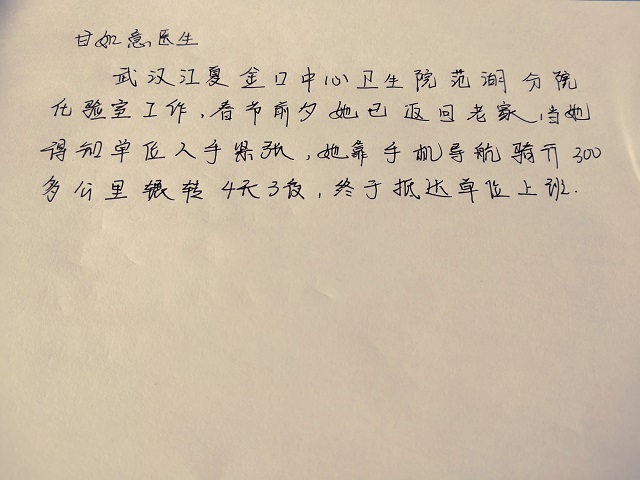 甘如意医生
武汉江夏金口中心卫生院范湖分院
化验室工作，春节前夕她已返回老家，当她
得知单位人手紧张，她靠手机导航骑行300
多公里辗转4天3夜，终于抵达单位上班.